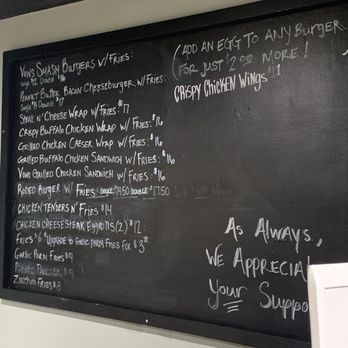 Von's Smash Burgers w/ Fries:
Double $16
Peanut Butter Bacon Cheeseburger w/ Fries:
Double $17
Steak n' Cheese Wrap w/ Fries: $17
Crispy Buffalo Chicken Wrap w/ Fries: $16
Grilled Chicken Caeser Wrap w/ Fries: $16
Grilled Buffalo Chicken Sandwich w/ Fries: $16
Vons Grilled Chicken Sandwich w/ Fries: $16
Rodeo Burger w/ Fries: Single $14.50 Double $17.50
Chicken Tenders n' Fries $14
Chicken Cheesesteak Eggrolls (2) $12
Fries $6 *Upgrade to Garlic Parm Fries For $3*
Garlic Parm Fries $9
$9
Zucchini Fries $8
(Add an egg to any burger
for just $2.00 more!
Crispy Chicken Wings $1
As Always,
We Apprecia
Your Suppo